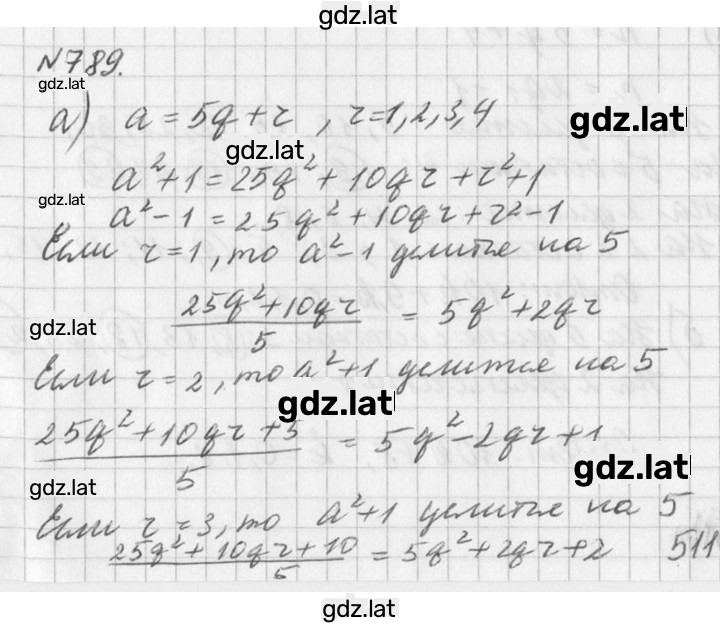 gdz.lat
№789.
gdz.lat
а) a = 5q + r , r = 1, 2, 3, 4
gdz.lat
gdz.lat
a² + 1 = 25q² + 10qr + r² + 1
gdz.lat
a² - 1 = 25q² + 10qr + r² - 1
Если r = 1, то a² - 1 делится на 5
(25q² + 10qr)/5 = 5q² + 2qr
gdz.lat
Если r = 2, то a² + 1 делится на 5
gdz.lat
(25q² + 10qr + 5)/5 = 5q² - 2qr + 1
gdz.lat
gdz.lat
Если r = 3, то a² + 1 делится на 5
(25q² + 10qr + 10)/5 = 5q² + 2qr + 2 511
gdz.lat